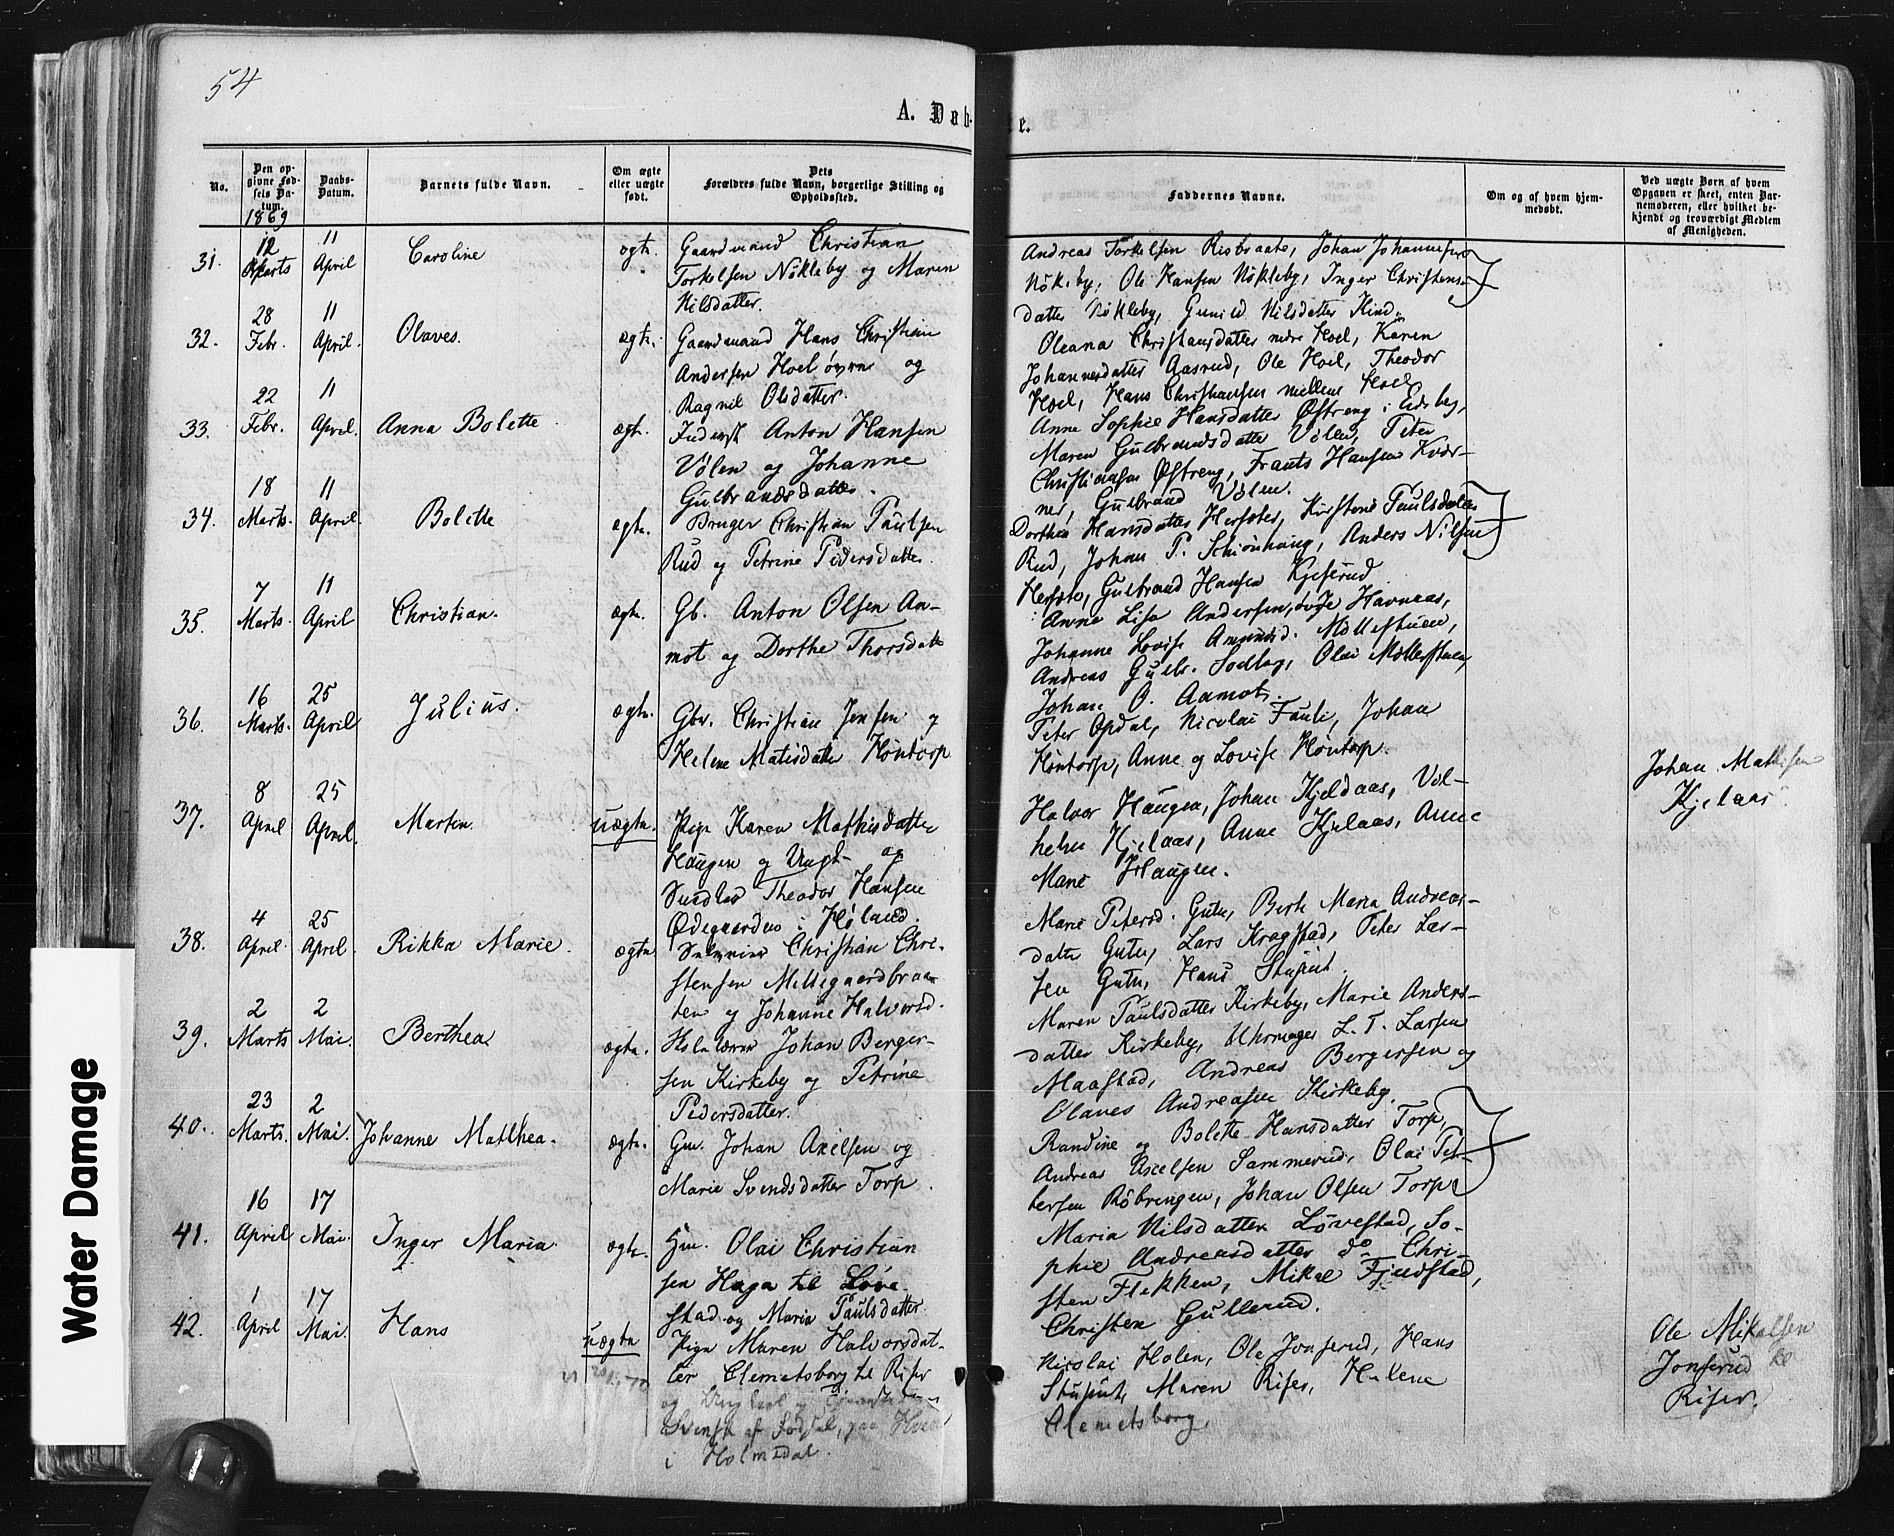 54
A. Døb-
e.
No.
Den op-
givne Fød-
sels Da-
tum.
Daabs-
Datum.
Barnets fulde Navn.
Om ægte
eller uægte
født.
Dets
Forældres fulde Navn, borgerlige Stilling og
Opholdssted.
Faddernes Navne.
Om og af hvem hjem-
medøbt.
Ved uægte Børn af hvem
Opgaven er skeet, enten Bar-
nemoderen, eller hvilket be-
kjendt og troværdigt Medlem
af Menigheden.
1869
31. 12 Marts 11 April Caroline ægte. Gaardmand Christian
Torkelsen Nökleby og Maren
Nilsdatter.
Andreas Torkelsen Risbraate, Johan Johannesen
Nökleby, Ole Hansen Nökleby, Inger Christens-
datter Nökleby, Gunild Nilsdatter Kind.
32. 28 Febr. 11 April. Olaves. ægte. Gaardmand Hans Christian
Andersen Hoel övre og
Ragnil Olsdatter.
Oleana Christiansdatter nedre Hoel, Karen
Johannesdatter Aasrud, Ole Hoel, Theodor
Hoel, Hans Christiansen mellem Hoel
33. 22 Febr. 11 April. Anna Bolette ægte. Inderst Anton Hansen
Vølen og Johanne
Gulbrandsdatter.
Anne Sophie Hansdatter Østreng i Eidsberg,
Maren Gulbrandsdatter Vølen, Peter
Christiansen Østreng, Frants Hansen Kvær-
ner, Gulbrand Vølen.
34. 18 Marts. 11 April Bolette ægte. Bruger Christian Paulsen
Rud og Petrine Pedersdatter
Dorthea Hansdatter Hersæter, Kirstene Paulsdatter
Rud, Johan P. Schiönhaug, Anders Nilsen
Hersæter, Gulbrand Hansen Kjeserud.
35. 7 Marts. 11 April Christian. ægte. Gb. Anton Olsen Aa-
mot og Dorthe Thorsdatter
Anne Lisa Andersen, Havnaas,
Johanne Lovise Amunds. Möllestuen,
Andreas Gulbr. Sodlag, Olai Mollerstuen,
Johan O. Aamot.
36. 16 Marts. 25 April Julius. ægte. Gbr. Christian Jensen og
Helene Matisdatter Höntorp
Peter Opdal, Nicolai Fauli, Johan
Höntorp, Anne og Lovise Höntorp.
37. 8 April 25 April. Martin. uægte. Pige Karen Mathisdatter
Haugen og Ungk. og
Theodor Hansen
Ødegaarden i Høland.
Halvor Haugen, Johan Kjeldaas, Vil-
helm Kjelaas, Anne Kjelaas, Anne
Marie Haugen.
Johan Mathisen
Kjelaas.
38. 4 April. 25 April. Rikka Marie. ægte. Christian Chri-
stensen Millegaardbraa-
ten og Johanne Halvorsd.
Marie Petersd. Guten, Berte Maria Andreas-
datter Guten, Lars Kragstad, Peter Lar-
sen Guten, Hans Stuput.
39. 2 Marts 2 Mai. Berthea ægte. Johan Berger-
sen Kirkeby og Petrine
Pedersdatter.
Maren Paulsdatter Kirkeby, Marie Anders-
datter Kirkeby, Uhrmager L. T. Larsen
Maastad, Andreas Bergersen og
Olaves Andreasen Kirkeby.
40. 23 Marts. 2 Mai. Johanne Mathea. ægte. Gm. Johan Axelsen og
Marie Svendsdatter Torp.
Randine og Bolette Hansdatter Torp,
Andreas Axelsen Sammerud, Olai Pet-
tersen Röbrengen, Johan Olsen Torp
41. 16 April 17 Mai. Inger Maria. ægte. Olai Christian
sen Haga til Løve
stad og Maria Paulsdatter.
Maria Nilsdatter Løvestad, So-
phie Andreasdatter do. Chri-
sten Flekken, Mikal Fjeldstad,
Christen Gullerud.
42. 1 April 17 Mai. Hans uægte Pige Maren Halvorsdat-
ter Clemetsborg til Riser
og Ungkarl og
Svensk af Födsel, paa
i Holmedal.
Nicolai Holen, Ole Jonserud, Hans
Stuput, Maren Riser, Helene
Clemetsborg.
Ole Mikalsen
Jonserud
Riser.
Water Damage